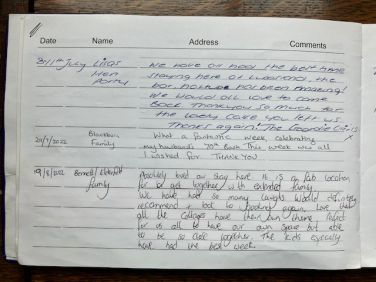 Date Name Address Comments
31st July Lisa's We have all had the best time
Hen staying here all weekend, the
Party bar, has been amazing!
We would all love to come
Back Thankyou so much for
the lovely cake you left us
Thanks again! The
29/7/2022 Blackburn What a fantastic week celebrating
Family my husbands 70th Bash This week was all
I wished for. THANK YOU
19/8/2022 Bennett/ Absolutely loved our stay here it is an fab location
Family for a get together with extended family.
We have had so many laughs would definitely
recommend + look to booking again. Love that
all the cottages have their own charm. Perfect
for us all to have our own space but able
to be so close together. The kids especially
have had the best week.